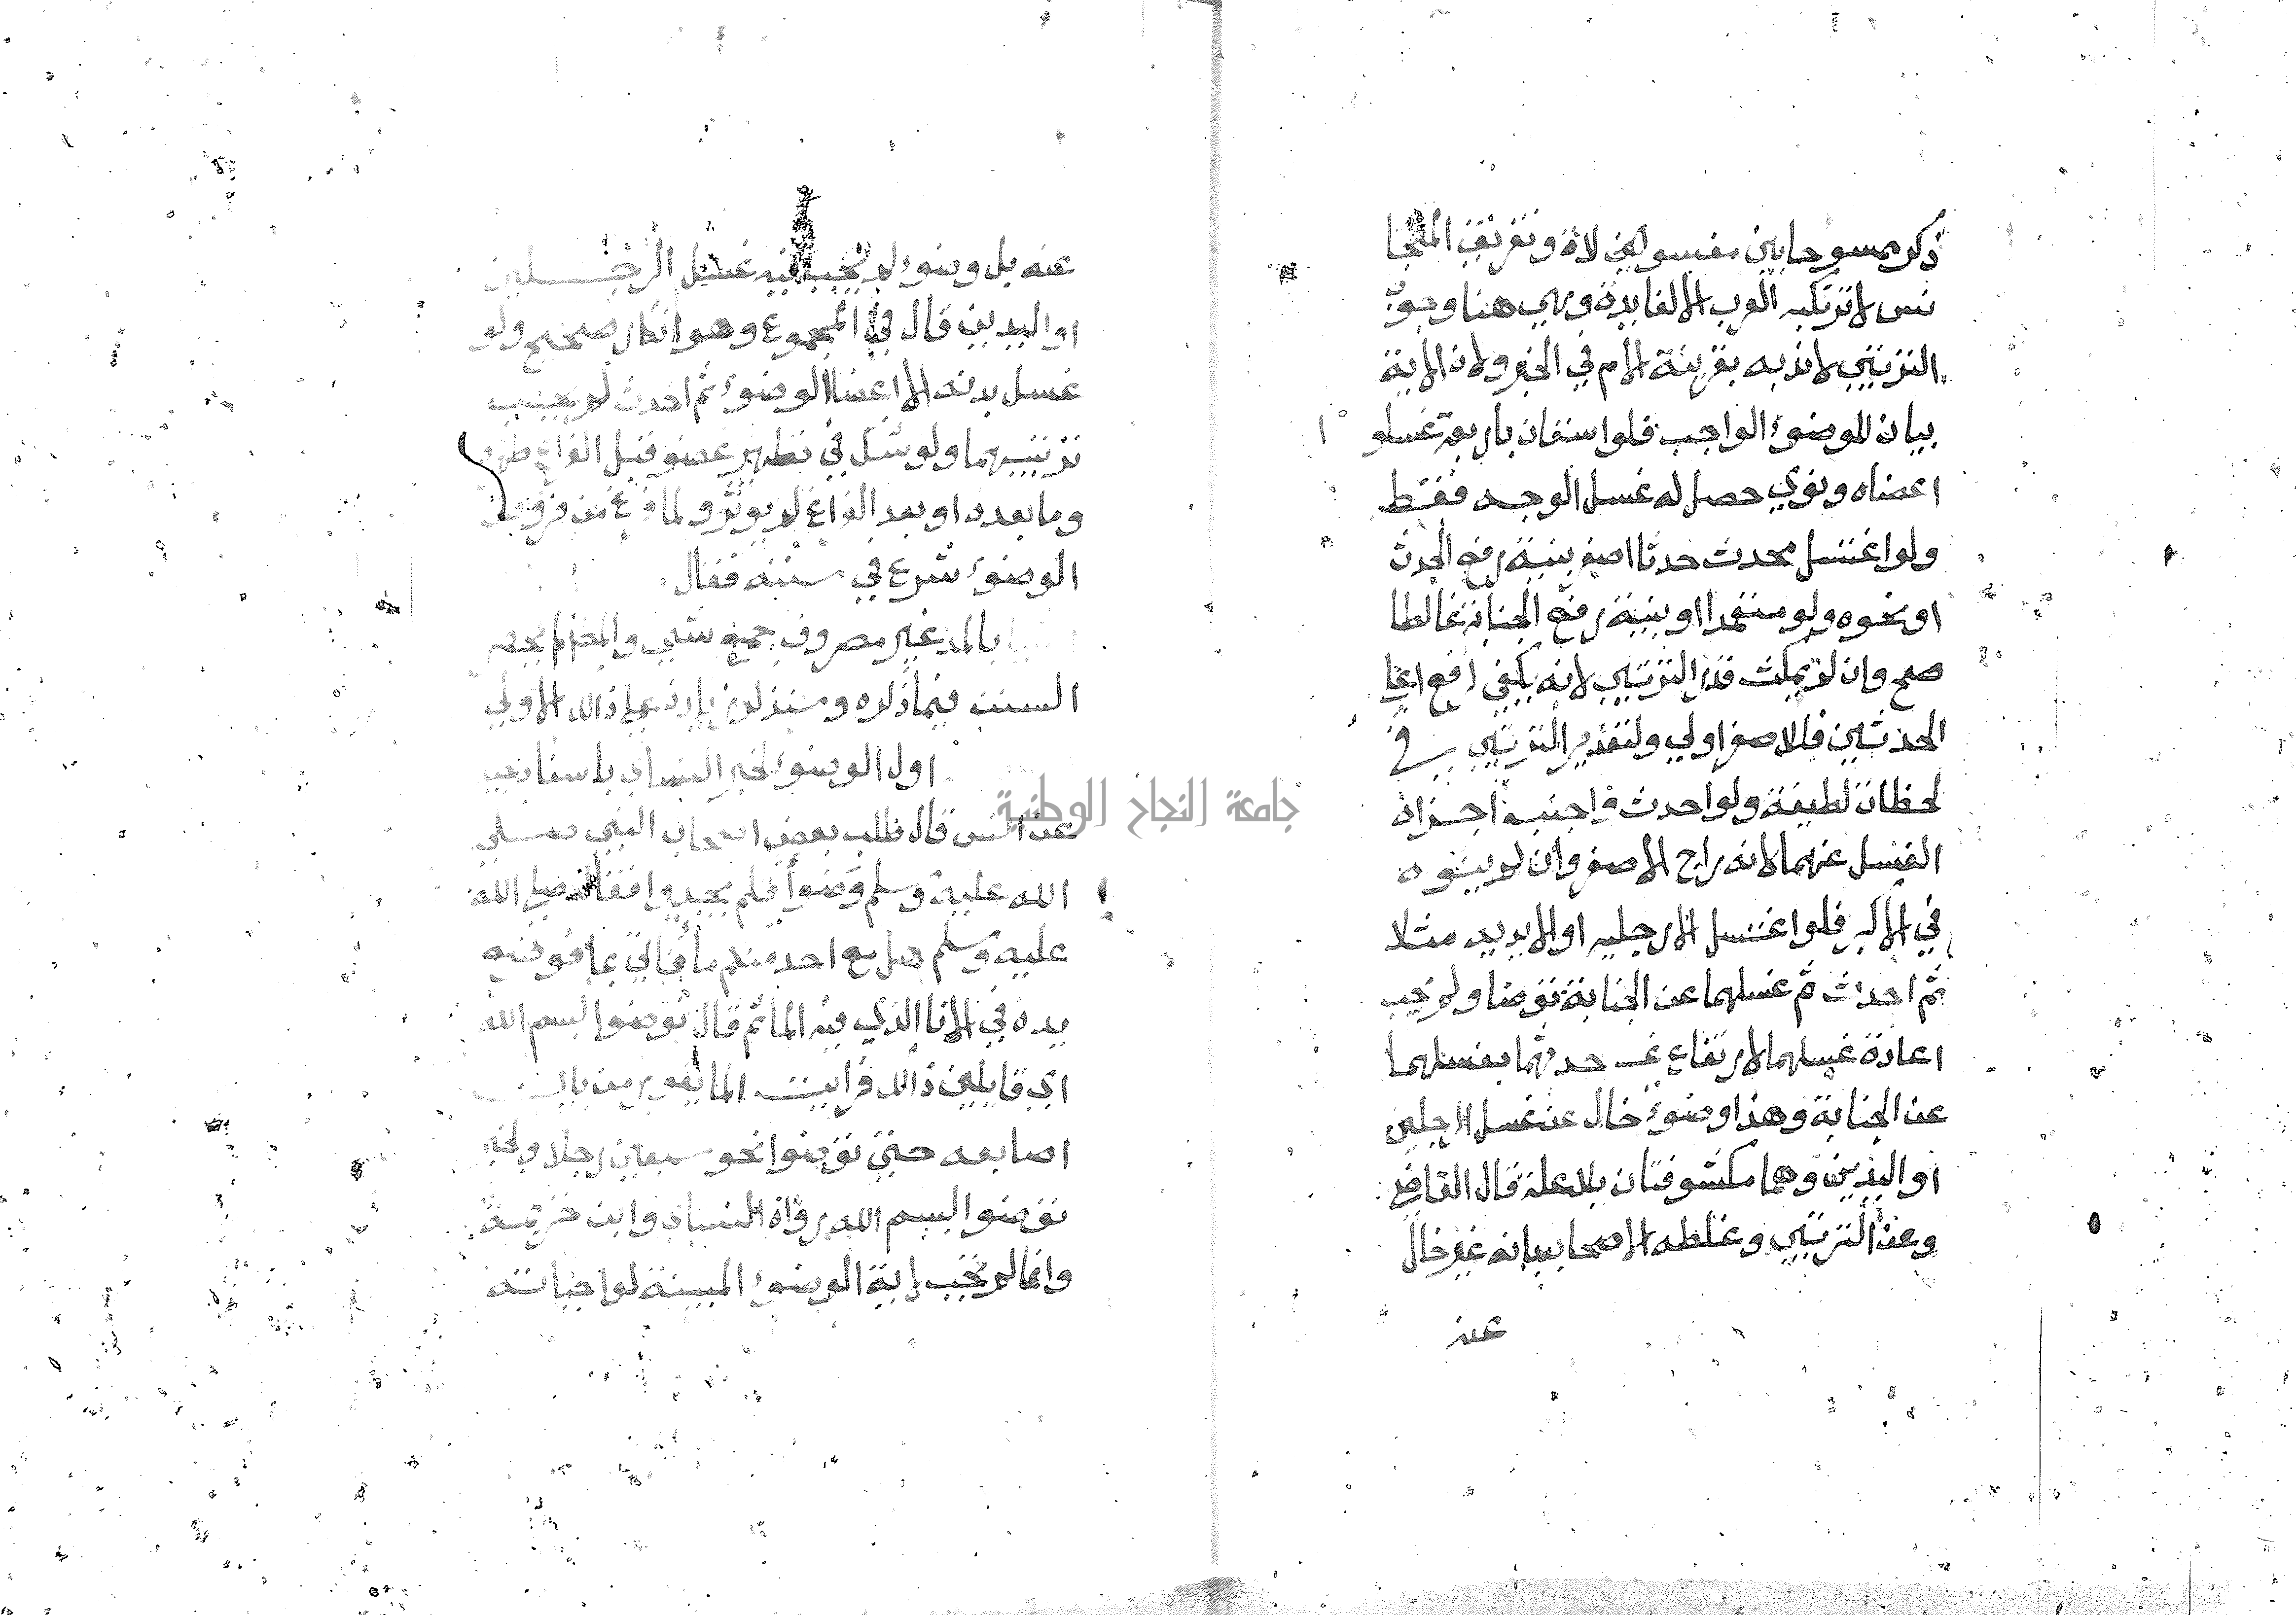 ذكر ممسوحا بين مغسولين لانه وتفريق المتجا
نس لا ترتكبه العرب الا لفايدة وهي هنا وجوب
الترتيب لا ندبه بقرينة الامر في الخبر ولان الاية
بيان للوضوء الواجب فلو استعان باربعة غسلو ا
اعضاه ونوى حصل له غسل الوجه فقط
ولو اغتسل محدث حدثا اصغر بنية رفع الحدث
او نحوه ولو متعمدا او بنية رفع الجنابة غالطا
صح وان لم يمكث قدر الترتيب لانه يكفي لرفع اعلا
الحدثين فللاصغر اولي ولتقدير الترتيب في
لحظات لطيفة ولو احدث واجنب اجزاه
الغسل عنهما لاندراج الاصغر وان لم ينوه
في الاكبر فلو اغتسل الا رجليه او الا يديه مثلا
ثم احدث ثم غسلهما عن الجنابة توضا ولم تجب
اعادة غسلهما لارتفاع حدثهما بغسلهما
عن الجنابة وهذا وضوء خال عن غسل الرجلين
او اليدين وهما مكشوفتان بلا علة قال القاضي
وعن الترتيب وغلطه الاصحاب بانه غير خال
عنه
عنه بل وضوء لم يجب فيه غسل الرجلين
او اليدين قال في المجموع وهو انكار صحيح ولو
غسل بدنه الا اعضا الوضوء ثم احدث لم يجب
ترتيبهما ولو شك في تطهير عضو قبل الفراغ طهره
وما بعده او بعد الفراغ لم يوثر ولما فرغ من فروض
الوضوء شرع في سننه فقال
بالمد غير مصروف جمع شي والمحرم بحصر
السنن فيما ذكره وسنذكر زيادة علي ذلك الاولي
اول الوضوء لخبر النساي باسناد جيد
عن انس قال طلب بعض اصحاب النبي صلي
الله عليه وسلم وضوأ فلم يجدوا فقال صلي الله
عليه وسلم هل مع احد منكم ما فاتي بما فوضع
يده في الانا الذي فيه الما ثم قال توضوا بسم الله
اي قايلين ذلك فرايت الما يفور من بين
اصابعه حتى توضوا نحو سبعين رجلا ولخبر
توضوا بسم الله رواه النساي وابن خزيمة
وانما لم تجب لاية الوضوء المبينة لواجباته
جامعة النجاح الوطنية